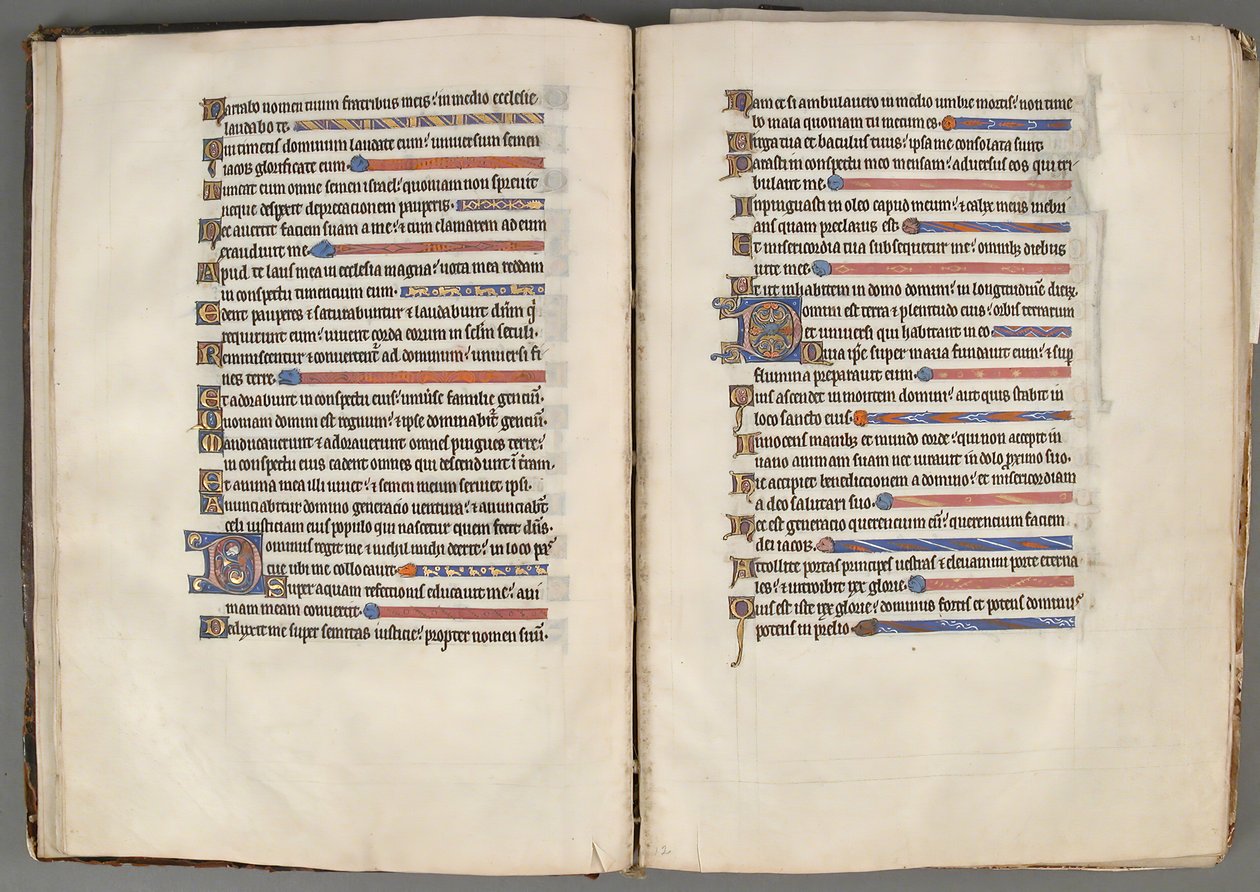 Narrabo nomen tuum fratribus meis: in medio ecclesie
laudabo te.
Qui timetis dominum laudate eum: universum semen
iacob glorificate eum.
Timeat eum omne semen israel: quoniam non sprevit
neque despexit deprecationem pauperis.
Nec avertit faciem suam a me: & cum clamarem ad eum
exaudivit me.
Apud te laus mea in ecclesia magna: vota mea reddam
in conspectu timentium eum.
Edent pauperes & saturabuntur & laudabunt dñm q̇
requirunt eum: vivent corda eorum in sclm seculi.
Reminiscentur & convertent̃ ad dominum: universi fi
nes terre.
Et adorabunt in conspectu eius: univ̇se familie gentiũ.
Quoniam domini est regnum: & ipse dominabit̃ gentiũ.
Manducaverunt & adoraverunt omnes pingues terre:
in conspectu eius cadent omnes qui descendunt ĩ t̃ram.
Et anima mea illi vivet: & semen meum serviet ipsi.
Anunciabitur domino generacio ventura: & anunciabũt
celi iusticiam eius populo qui nascetur quem fecit dñs.
Dominus regit me & nichil michi deerit: in loco pas
cue ibi me collocavit.
Super aquam refectionis educavit me: ani
mam meam convertit.
Deduxit me super semitas iusticie: propter nomen suũ.
Nam et si ambulavero in medio umbre mortis: non time
bo mala quoniam tu mecum es.
Virga tua et baculus tuus: ipsa me consolata sunt.
Parasti in conspectu meo mensam: adversus eos qui tri
bulant me.
Inpinguasti in oleo capud meum: & calix meus inebri
ans quam preclarus est.
Et misericordia tua subsequetur me: omnibȝ diebus
vite mee.
Et ut inhabitem in domo domini: in longitudinẽ dierȝ.
Domini est terra & plenitudo eius: orbis terrarum
et universi qui habitant in eo
Quia ip̃e super maria fundavit eum: & sup̱
flumina preparavit eum.
Quis ascendet in montem domini: aut quis stabit in
loco sancto eius.
Innocens manibȝ et mundo corde: qui non accepit in
vano animam suam nec iuravit in dolo p̱ximo suo.
Hic accipiet benedictionem a domino: et misericordiam
a deo salutari suo.
Hec est generacio querencium eũ: querencium faciem
dei iacob.
Attollite portas principes vestras & elevamini porte eterna
les: & introibit rex glorie.
Quis est iste rex glorie: dominus fortis et potens dominus
potens in prelio
12